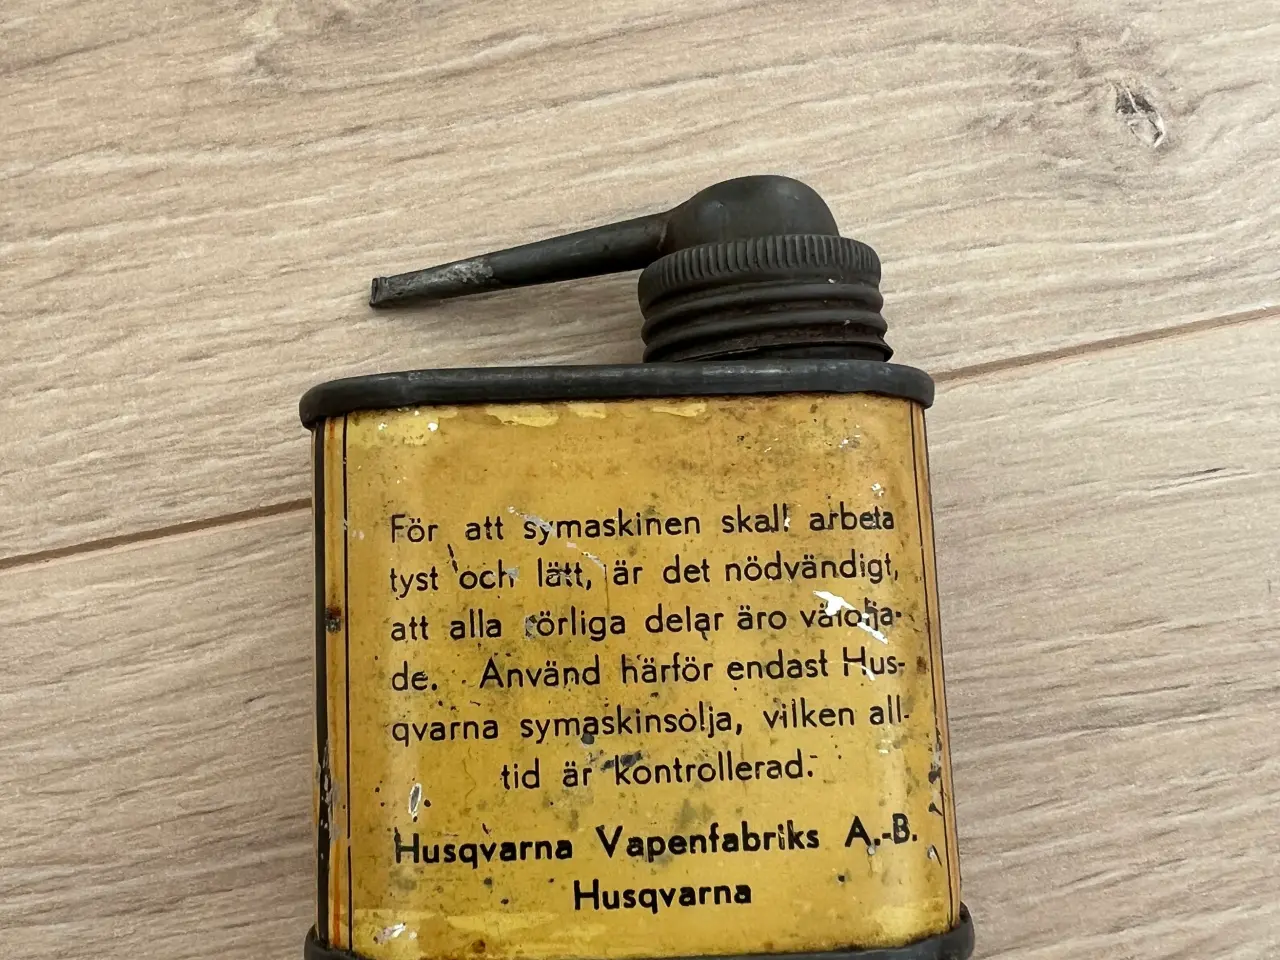 För att symaskinen skall arbeta
tyst och lätt, är det nödvändigt,
att alla rörliga delar äro välolja-
de. Använd härför endast Hus-
qvarna symaskinsolja, vilken all-
tid är kontrollerad.
Husqvarna Vapenfabriks A.-B.
Husqvarna